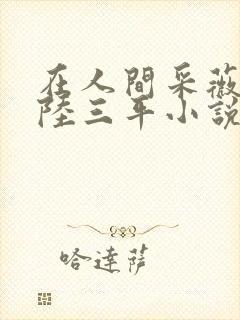 在人間采薇
陸三年小說
哈達薩